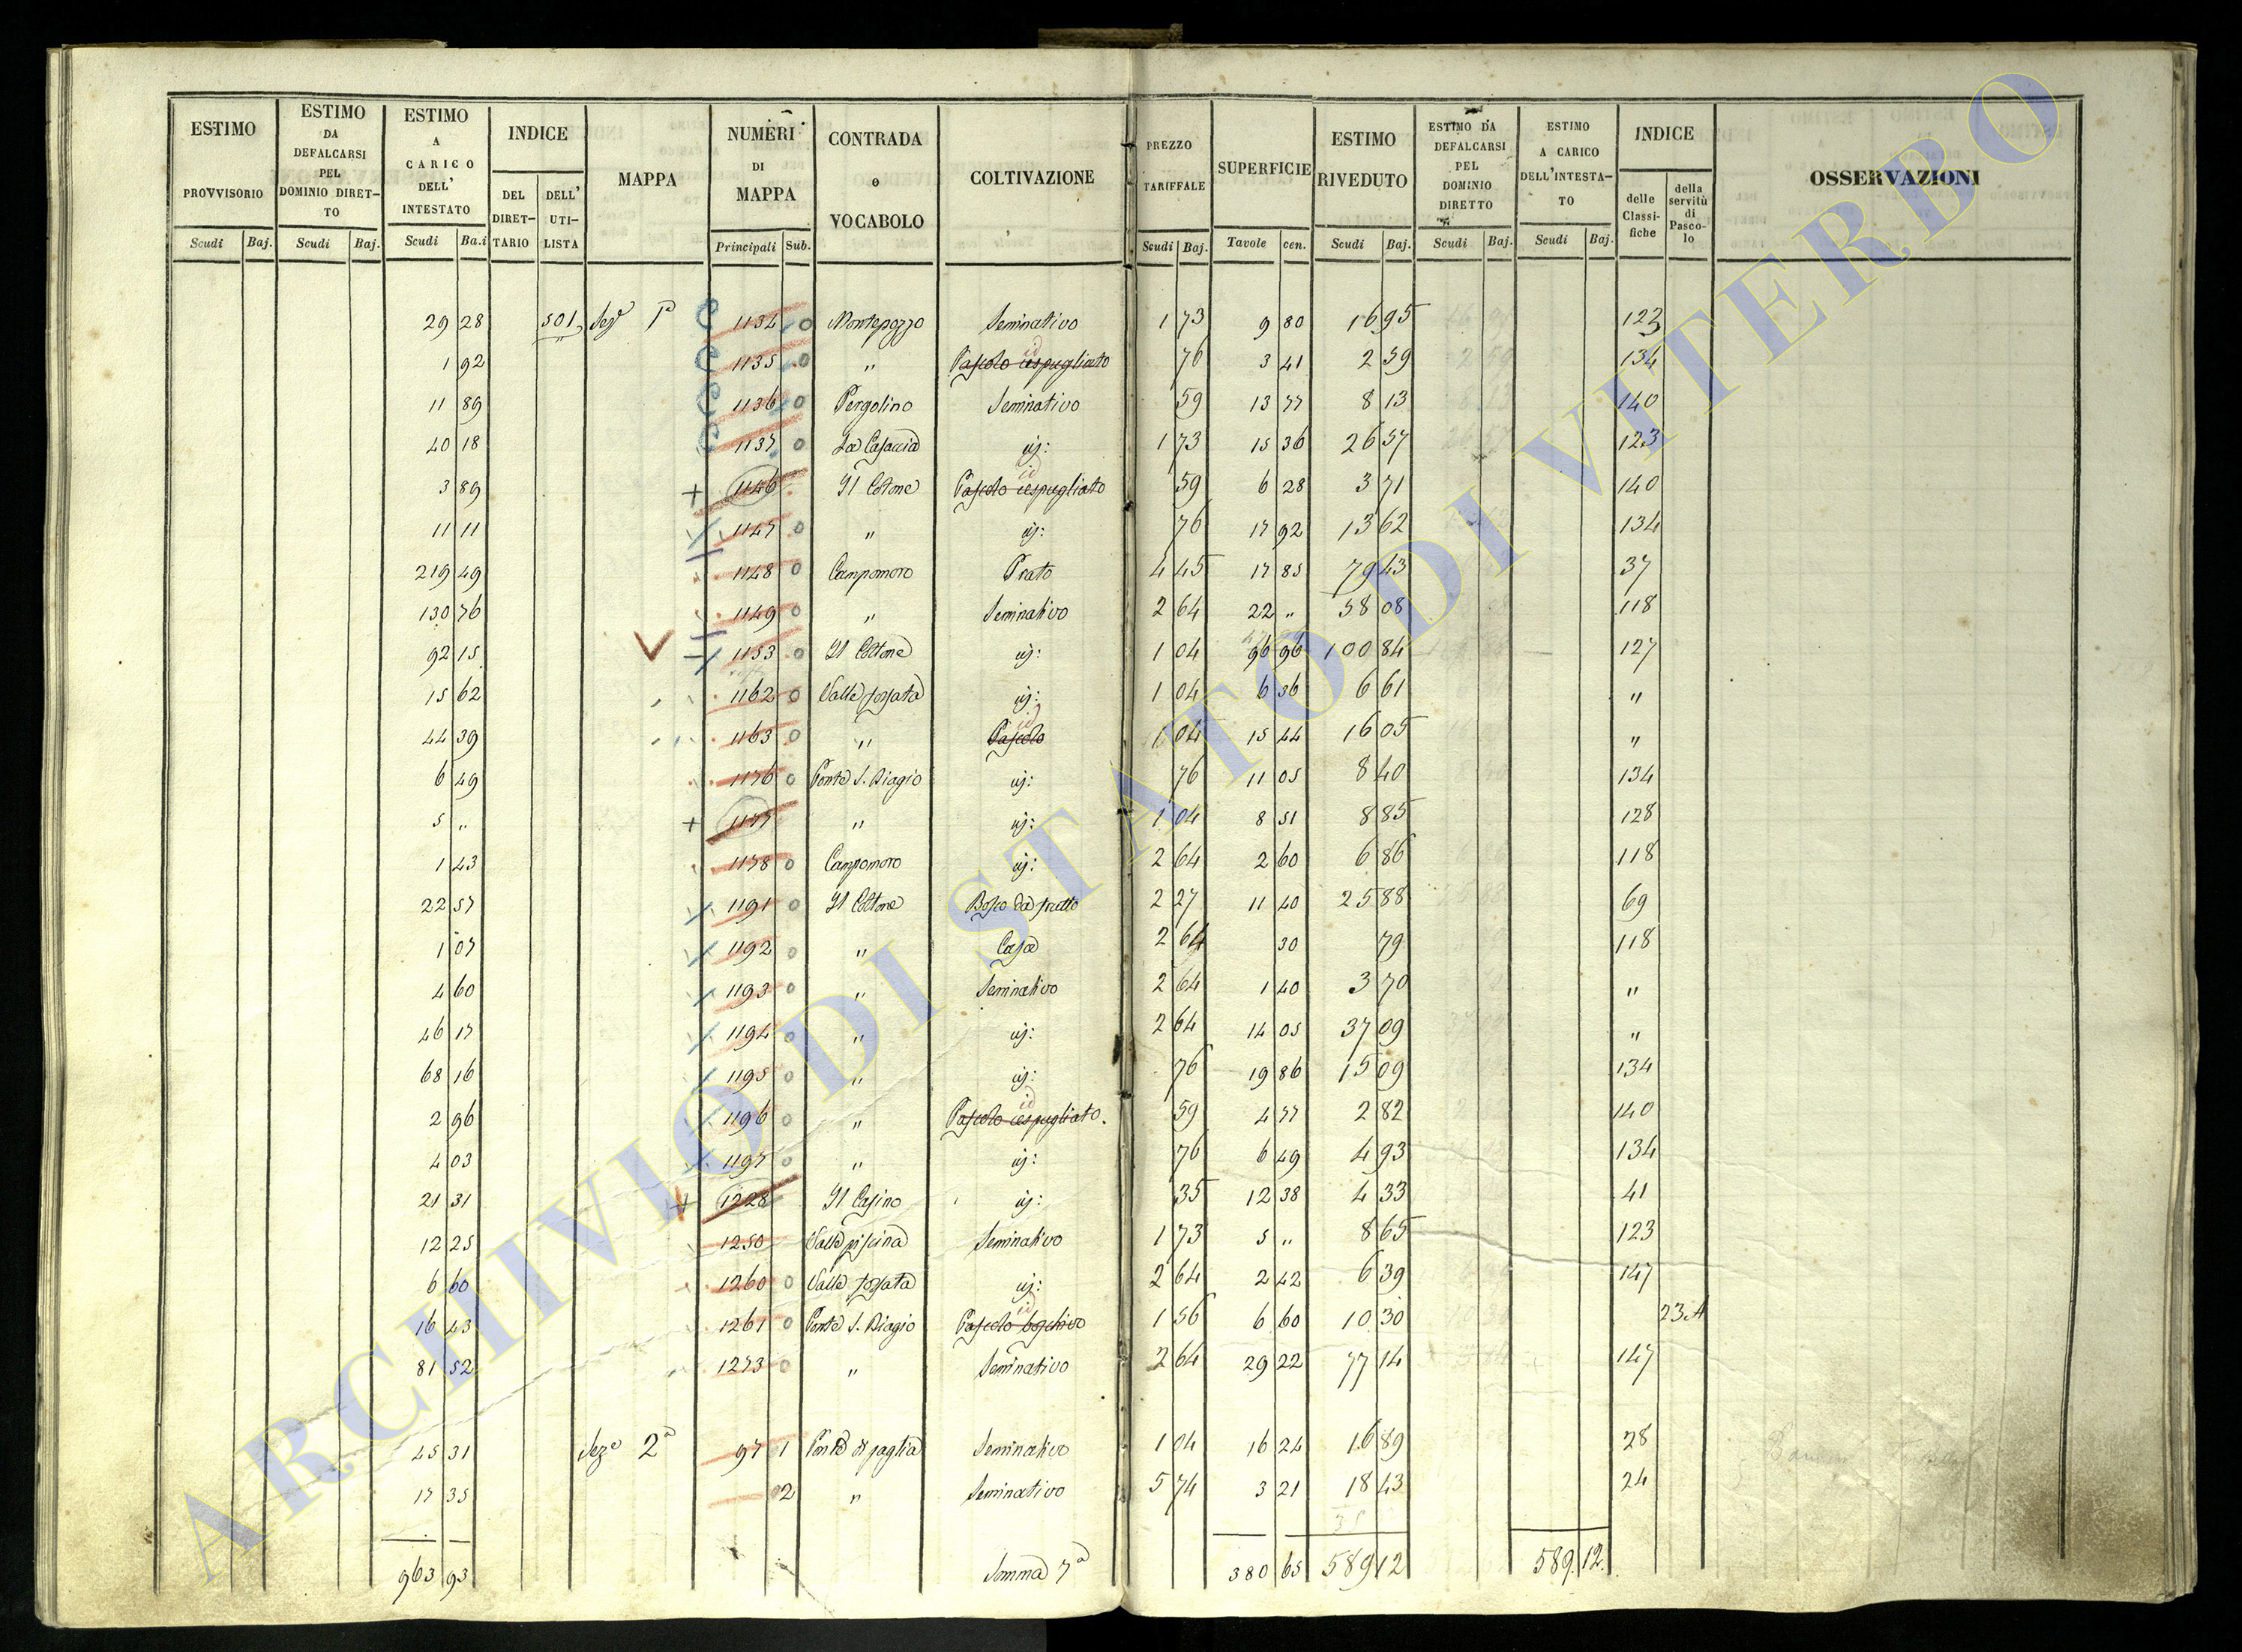 ESTIMO PROVVISORIO Scudi Baj.
ESTIMO DA DEFALCARSI PEL DOMINIO DIRETTO Scudi Baj.
ESTIMO A CARICO DELL' INTESTATO Scudi Ba.i
INDICE DEL DIRETTARIO DELL' UTILISTA
MAPPA
NUMERI DI MAPPA Principali Sub.
CONTRADA o VOCABOLO
COLTIVAZIONE
PREZZO TARIFFALE Scudi Baj.
SUPERFICIE Tavole cen.
ESTIMO RIVEDUTO Scudi Baj.
ESTIMO DA DEFALCARSI PEL DOMINIO DIRETTO Scudi Baj.
ESTIMO A CARICO DELL'INTESTATO Scudi Baj.
INDICE delle Classifiche della servitù di Pascolo
OSSERVAZIONI
29 28 501 Sez.e 1a 1134 0 Montepozzo Seminativo 1 73 9 80 16 95 123
1 92 1135 0 " Pascolo cespugliato id 76 3 41 2 59 134
11 89 1136 0 Pergolino Seminativo 59 13 77 8 13 140
40 18 1137 0 La Casaccia id: 1 73 15 36 26 57 123
3 89 + 1146 Il Cotone Pascolo cespugliato id 59 6 28 3 71 140
11 11 1147 0 " id: 76 17 92 13 62 134
219 49 1148 0 Campomoro Prato 4 45 17 85 79 43 37
130 76 1149 0 " Seminativo 2 64 22 " 58 08 118
92 15 1153 0 Il Cottone id: 1 04 96 96 100 84 127
15 62 1162 0 Valle fossata id: 1 04 6 36 6 61 "
44 39 1163 0 " Pascolo id 1 04 15 44 16 05 "
6 49 1176 0 Ponte S. Biagio id: 76 11 05 8 40 134
5 " + 1177 " id: 1 04 8 51 8 85 128
1 43 1178 0 Campomoro id: 2 64 2 60 6 86 118
22 57 1191 0 Il Cottone Bosco da frutto 2 27 11 40 25 88 69
1 07 1192 0 " Casa 2 64 30 79 118
4 60 1193 0 " Seminativo 2 64 1 40 3 70 "
46 17 1194 0 " id: 2 64 14 05 37 09 "
68 16 1195 0 " id: 76 19 86 15 09 134
2 96 1196 0 " Pascolo cespugliato. id 59 4 77 2 82 140
4 03 1197 0 " id: 76 6 49 4 93 134
21 31 + 1228 Il Casino id: 35 12 38 4 33 41
12 25 1250 Valle piscina Seminativo 1 73 5 " 8 65 123
6 60 1260 0 Valle fossata id: 2 64 2 42 6 39 147
16 43 1261 0 Ponte S. Biagio Pascolo boschivo id 1 56 6 60 10 30 23.A
81 52 1273 0 " Seminativo 2 64 29 22 77 14 147
45 31 Sez.e 2a 97 1 Ponte di paglia Seminativo 1 04 16 24 16 89 28
17 35 2 " Seminativo 5 74 3 21 18 43 24
963 93 Somma 7a 380 65 589 12 589 12
ARCHIVIO DI STATO DI VITERBO